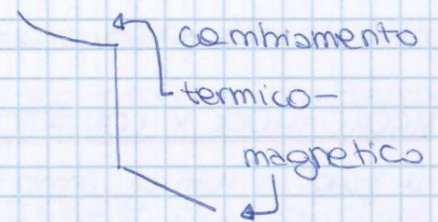 cambiamento
termico-
magnetico